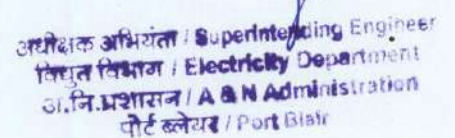 अधीक्षक अभियंता / Superintending Engineer
विद्युत विभाग / Electricity Department
अ.नि.प्रशासन / A & N Administration
पोर्ट ब्लेयर / Port Blair